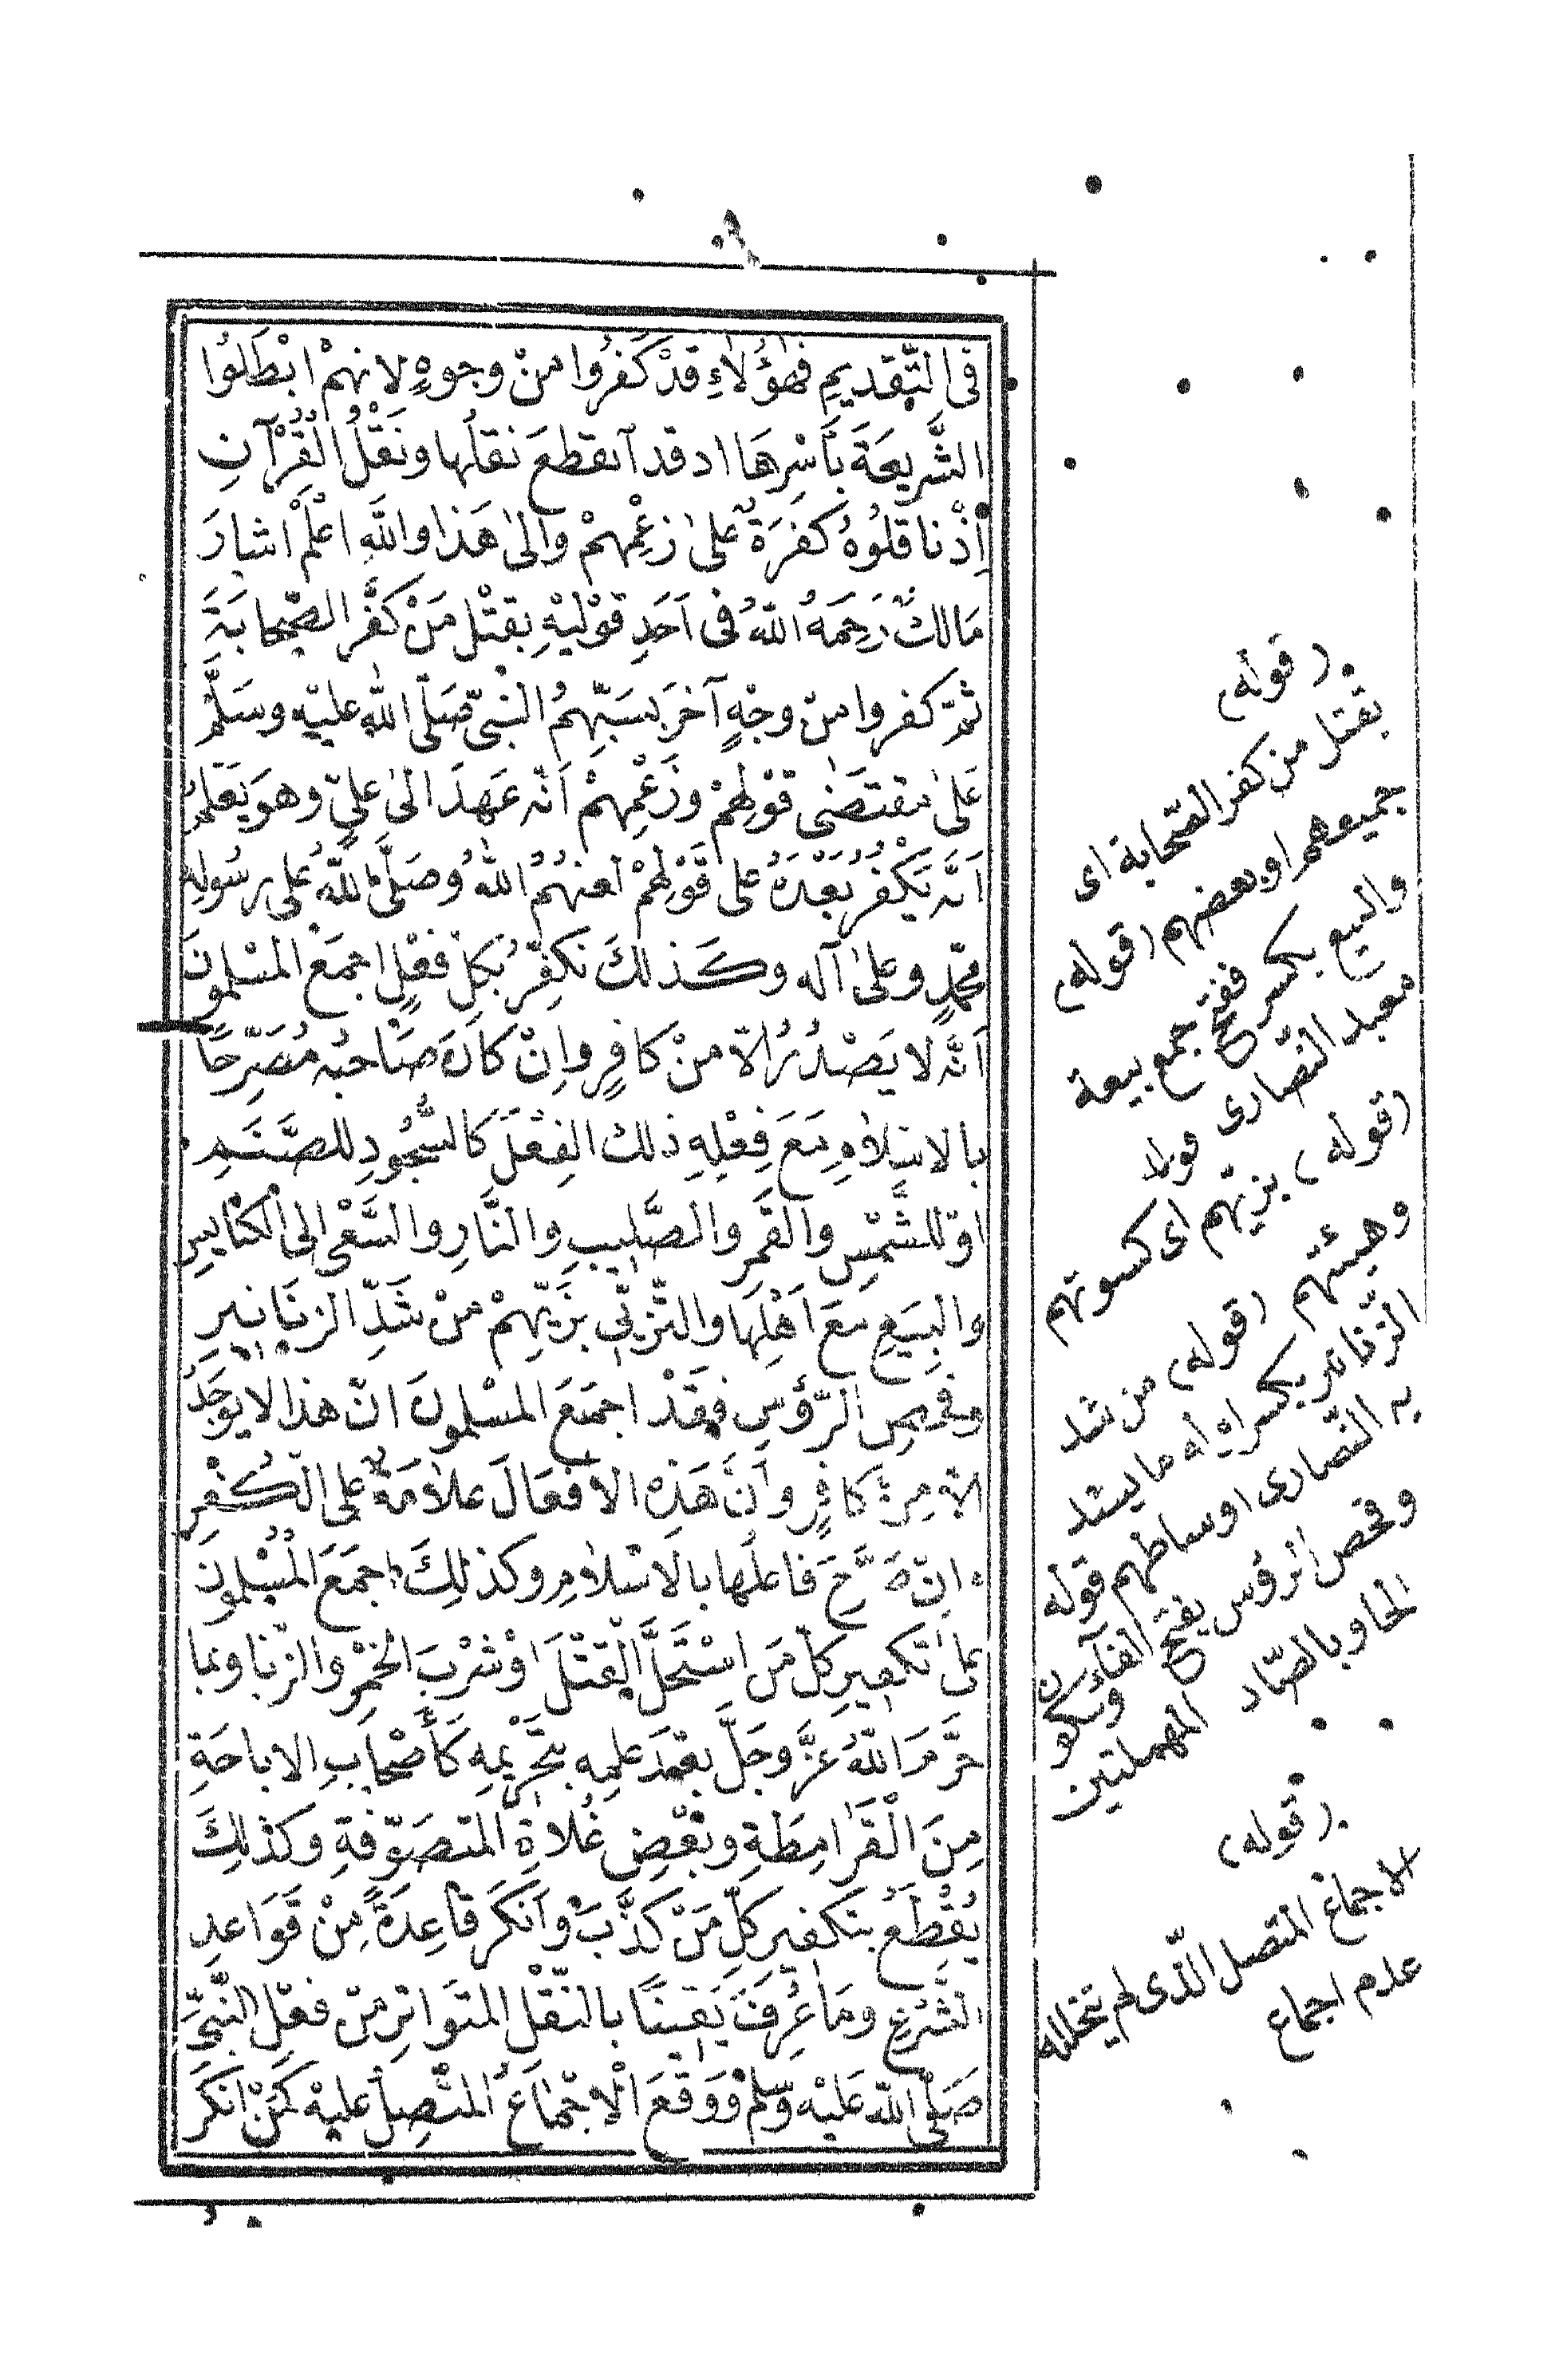 فى التَّقديمِ فهٰؤُلاءِ قدْ كَفرُوا منْ وجوهٍ لانهمْ ابْطَلوُا
الشَّريعَةَ بأَسْرِهَا اذ قد انقطعَ نقلُها ونَقْلُ القُرْآنِ
اِذْ ناقلوُهُ كَفَرَةٌ علىٰ زعْمِهمْ والىٰ هَذا واللهُ اعْلمُ اشارَ
مَالكٌ رَحِمَهُ اللهُ فى اَحَدِ قوْليْهِ بِقتْلِ مَنْ كَفَّرَ الصَّحابَةَ
ثمّ كفروا منْ وجْهٍ آخرَ بسَبِّهِمُ النَّبىَّ صَلّى اللهُ عليْهِ وسَلَّمَ
عَلىٰ مقتضَىٰ قوْلِهمْ وزَعْمِهمْ اَنّه عَهِدَ الىٰ علىٍّ وهوَ يَعْلمُ
اَنَّه يَكْفُرُ بَعْدَهُ علىٰ قَوْلِهمْ لعنهُمُ اللهُ وصَلَّى اللهُ على رسُولِهِ
محمّدٍ وعلىٰ آله وكَذلكَ نكفِّرُ بكلِّ فعْلٍ اجمَعَ المسْلمونَ
اَنَّه لا يَصْدُرُ الّا منْ كافرٍ واِنْ كانَ صَاحبُه مُصَرِّحًا
بالاسْلاَمِ مَعَ فِعْلِهِ ذلك الفِعْلَ كالسُّجُودِ للصَّنَمِ
اوْ للشَّمْسِ والقَمرِ والصَّليبِ والنَّارِ والسَّعْىِ الى الكنَايسِ
والبِيَعِ مَعَ اَهْلِهَا والتَّزَيِّى بزَيّهمْ منْ شَدِّ الزنَانيرِ
وفَحْصِ الرّؤُسِ فقَدْ اجمَعَ المسْلمونَ انّ هذا لا يوجَدُ
الّا مِنْ كافرٍ وَاَنَّ هَذِهِ الافعَالَ علاَمَةٌ على الكُفْرِ
وانْ صَرَّحَ فاعلُها بالاسْلاَمِ وكذلِكَ اجمَعَ المُسْلمونَ
علىٰ تكفيرِ كلّ مَن اسْتَحَلَّ القتْلَ اوْ شرْبَ الخمْرِ والزّنا ممّا
حَرَّمَ اللهُ عزَّ وجَلَّ بعْدَ علمِه بتَحْريْمِهِ كَأَصْحابِ الاباحَةِ
مِنَ الْقَرَامِطَةِ وبَعْضِ غُلاةِ المتصَوّفةِ وكذلِكَ
يُقْطَعُ بتكفيرِ كلِّ مَنْ كذَّبَ وأنكَرَ قاعِدَةً مِنْ قَوَاعدِ
الشَّرْعِ ومَا عُرِفَ يَقينًا بالنّقْلِ المتَوَاترِ منْ فعْلِ النَّبىِّ
صَلّى اللهُ عَليْه وسلمْ ووَقعَ الْاجْماعُ المتّصِلُ عليْه كَمَنْ انكَرَ
(قوله)
بقتل من كفر الصّحابة اى
جميعهم او بعضهم (قوله)
والبيع بكسر ففتح جمع بيعة
معبد النّصارى
(قوله) بزيّهم اى كسوتهم
وهيئتهم (قوله) من شد
الزّنانير بكسر اوله ما يشد
به النّصارى اوساطهم قوله
وفحص الرؤس بفتح الفآء وسكون
الحا وبالصّاد المهملتين
(قوله)
الاجماع المتصل الّذى لم يتخلله
عدم اجماع